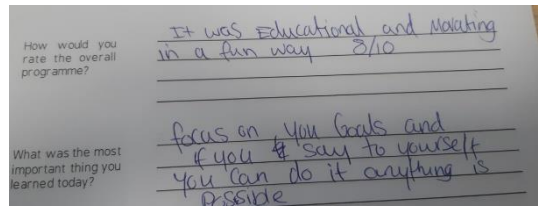 How would you
rate the overall
programme?
It was Educational and Motating
in a fun way 8/10
What was the most
important thing you
learned today?
focus on you Goals and
if you say to yourself
you can do it anything is
Possible